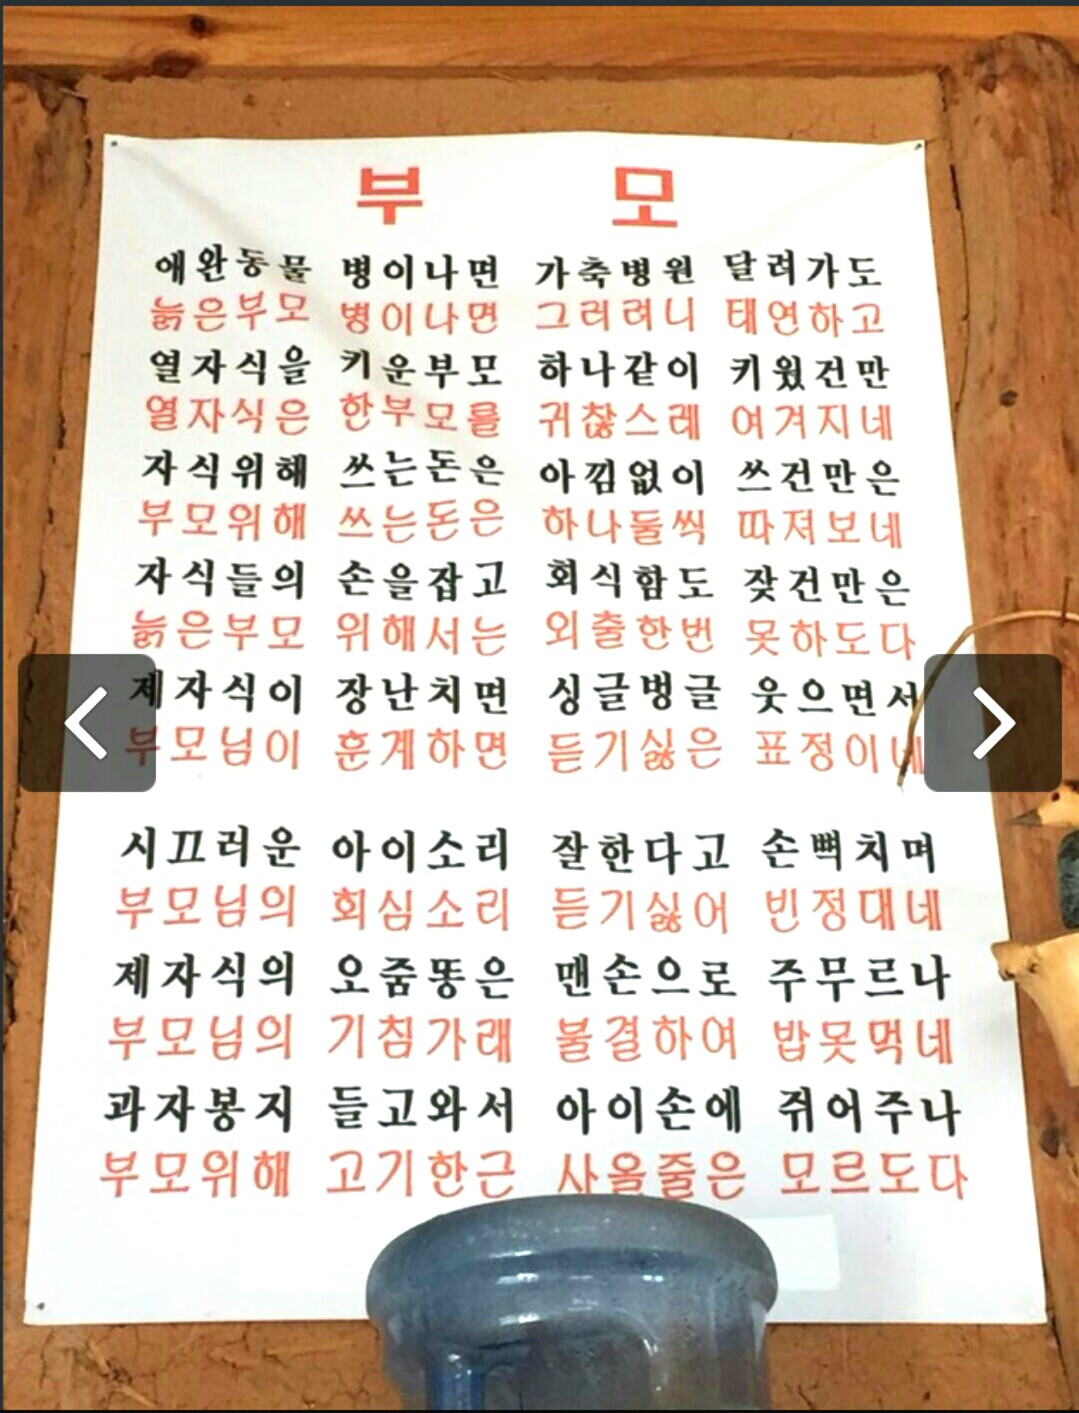 부 모
애완동물 병이나면 가축병원 달려가도
늙은부모 병이나면 그러려니 태연하고
열자식을 키운부모 하나같이 키웠건만
열자식은 한부모를 귀찮스레 여겨지네
자식위해 쓰는돈은 아낌없이 쓰건만은
부모위해 쓰는돈은 하나둘씩 따져보네
자식들의 손을잡고 회식함도 잦건만은
늙은부모 위해서는 외출한번 못하도다
제자식이 장난치면 싱글벙글 웃으면서
부모님이 훈계하면 듣기싫은 표정이네
시끄러운 아이소리 잘한다고 손뻑치며
부모님의 회심소리 듣기싫어 빈정대네
제자식의 오줌똥은 맨손으로 주무르나
부모님의 기침가래 불결하여 밥못먹네
과자봉지 들고와서 아이손에 쥐어주나
부모위해 고기한근 사올줄은 모르도다